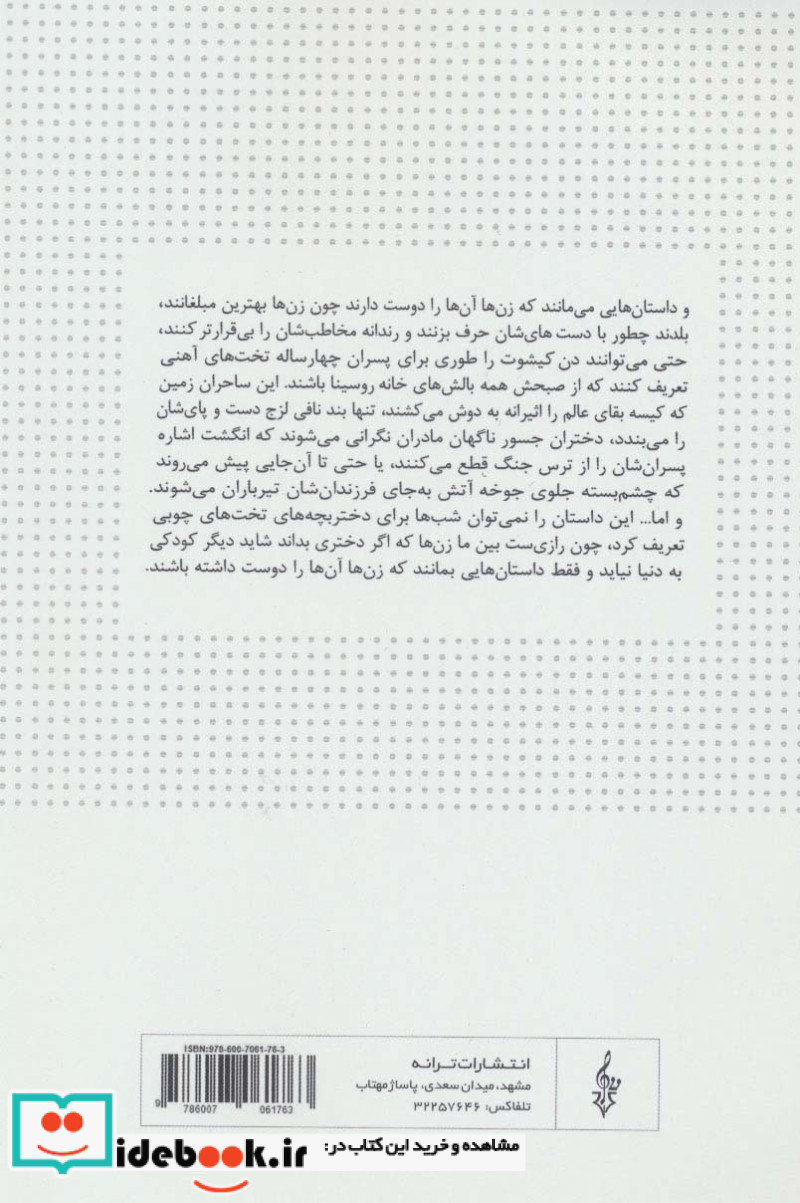 و داستان‌هایی می‌مانند که زن‌ها آن‌ها را دوست دارند چون زن‌ها بهترین مبلغانند،
بلدند چطور با دست های‌شان حرف بزنند و رندانه مخاطب‌شان را بی‌قرارتر کنند،
حتی می‌توانند دن کیشوت را طوری برای پسران چهارساله تخت‌های آهنی
تعریف کنند که از صبحش همه بالش‌های خانه روسینا باشند. این ساحران زمین
که کیسه بقای عالم را اثیرانه به دوش می‌کشند، تنها بند نافی لزج دست و پای‌شان
را می‌بندد، دختران جسور ناگهان مادران نگرانی می‌شوند که انگشت اشاره
پسران‌شان را از ترس جنگ قطع می‌کنند، یا حتی تا آن‌جایی پیش می‌روند
که چشم‌بسته جلوی جوخه آتش به‌جای فرزندان‌شان تیرباران می‌شوند.
و اما... این داستان را نمی‌توان شب‌ها برای دختربچه‌های تخت‌های چوبی
تعریف کرد، چون رازی‌ست بین ما زن‌ها که اگر دختری بداند شاید دیگر کودکی
به دنیا نیاید و فقط داستان‌هایی بمانند که زن‌ها آن‌ها را دوست داشته باشند.
انتشارات ترانه
مشهد، میدان سعدی، پاساژ مهتاب
تلفاکس: ۳۲۲۵۷۶۴۶
ISBN:978-600-7061-76-3
9 786007 061763
مشاهده و خرید این کتاب در:
idebook.ir